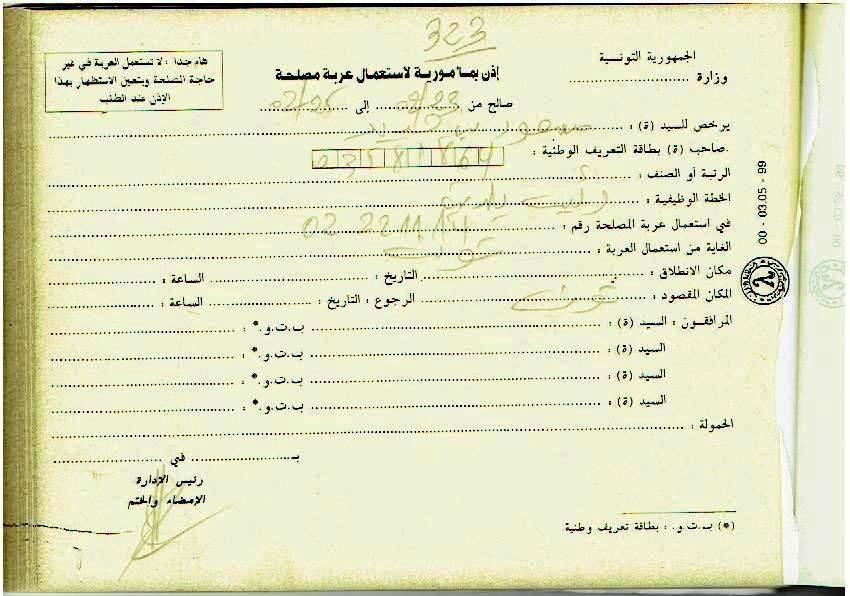 323
الجمهورية التونسية
وزارة
إذن بمأمورية لاستعمال عربة مصلحة
هام جدا : لا تستعمل العربة في غير
حاجة المصلحة ويتعين الاستظهار بهذا
الإذن عند الطلب
صالح من 02/23 إلى 02/25
يرخص للسيد (ة) :
صاحب (ة) بطاقة التعريف الوطنية :
الرتبة أو الصنف :
الخطة الوظيفية :
في استعمال عربة المصلحة رقم : 02 221114
الغاية من استعمال العربة :
مكان الانطلاق : التاريخ : الساعة :
المكان المقصود : الرجوع : التاريخ : الساعة :
المرافقون : السيد (ة) : ب.ت.و.* :
السيد (ة) : ب.ت.و.* :
السيد (ة) : ب.ت.و.* :
السيد (ة) : ب.ت.و.* :
الحمولة :
بـ في
رئيس الإدارة
الإمضاء والختم
(*) ب.ت.و. : بطاقة تعريف وطنية
00 - 03.05 - 99